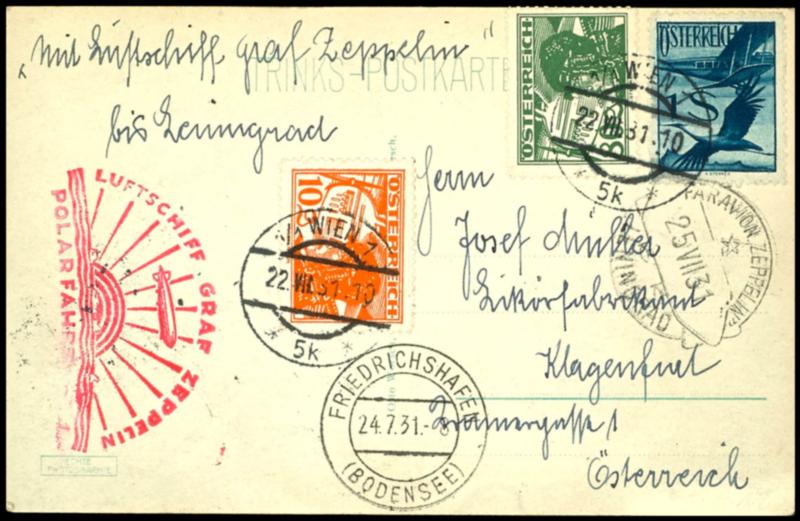 „Mit Luftschiff Graf Zeppelin"
TRINKS-POSTKARTE
bis Leningrad
ÖSTERREICH
8
ÖSTERREICH
1 S
1/1 WIEN 1
22.VII.31.10
* 5k *
10
ÖSTERREICH
1/1 WIEN 1
22.VII.31.10
* 5k *
PAR AVION „ZEPPELIN"
25 VII 31
LENINGRAD
LUFTSCHIFF GRAF ZEPPELIN
POLARFAHRT
Herrn
Josef Müller
Likörfabrikant
Klagenfurt
1
Österreich
FRIEDRICHSHAFEN
24.7.31.-8
(BODENSEE)
ECHTE
PHOTOGRAPHIE